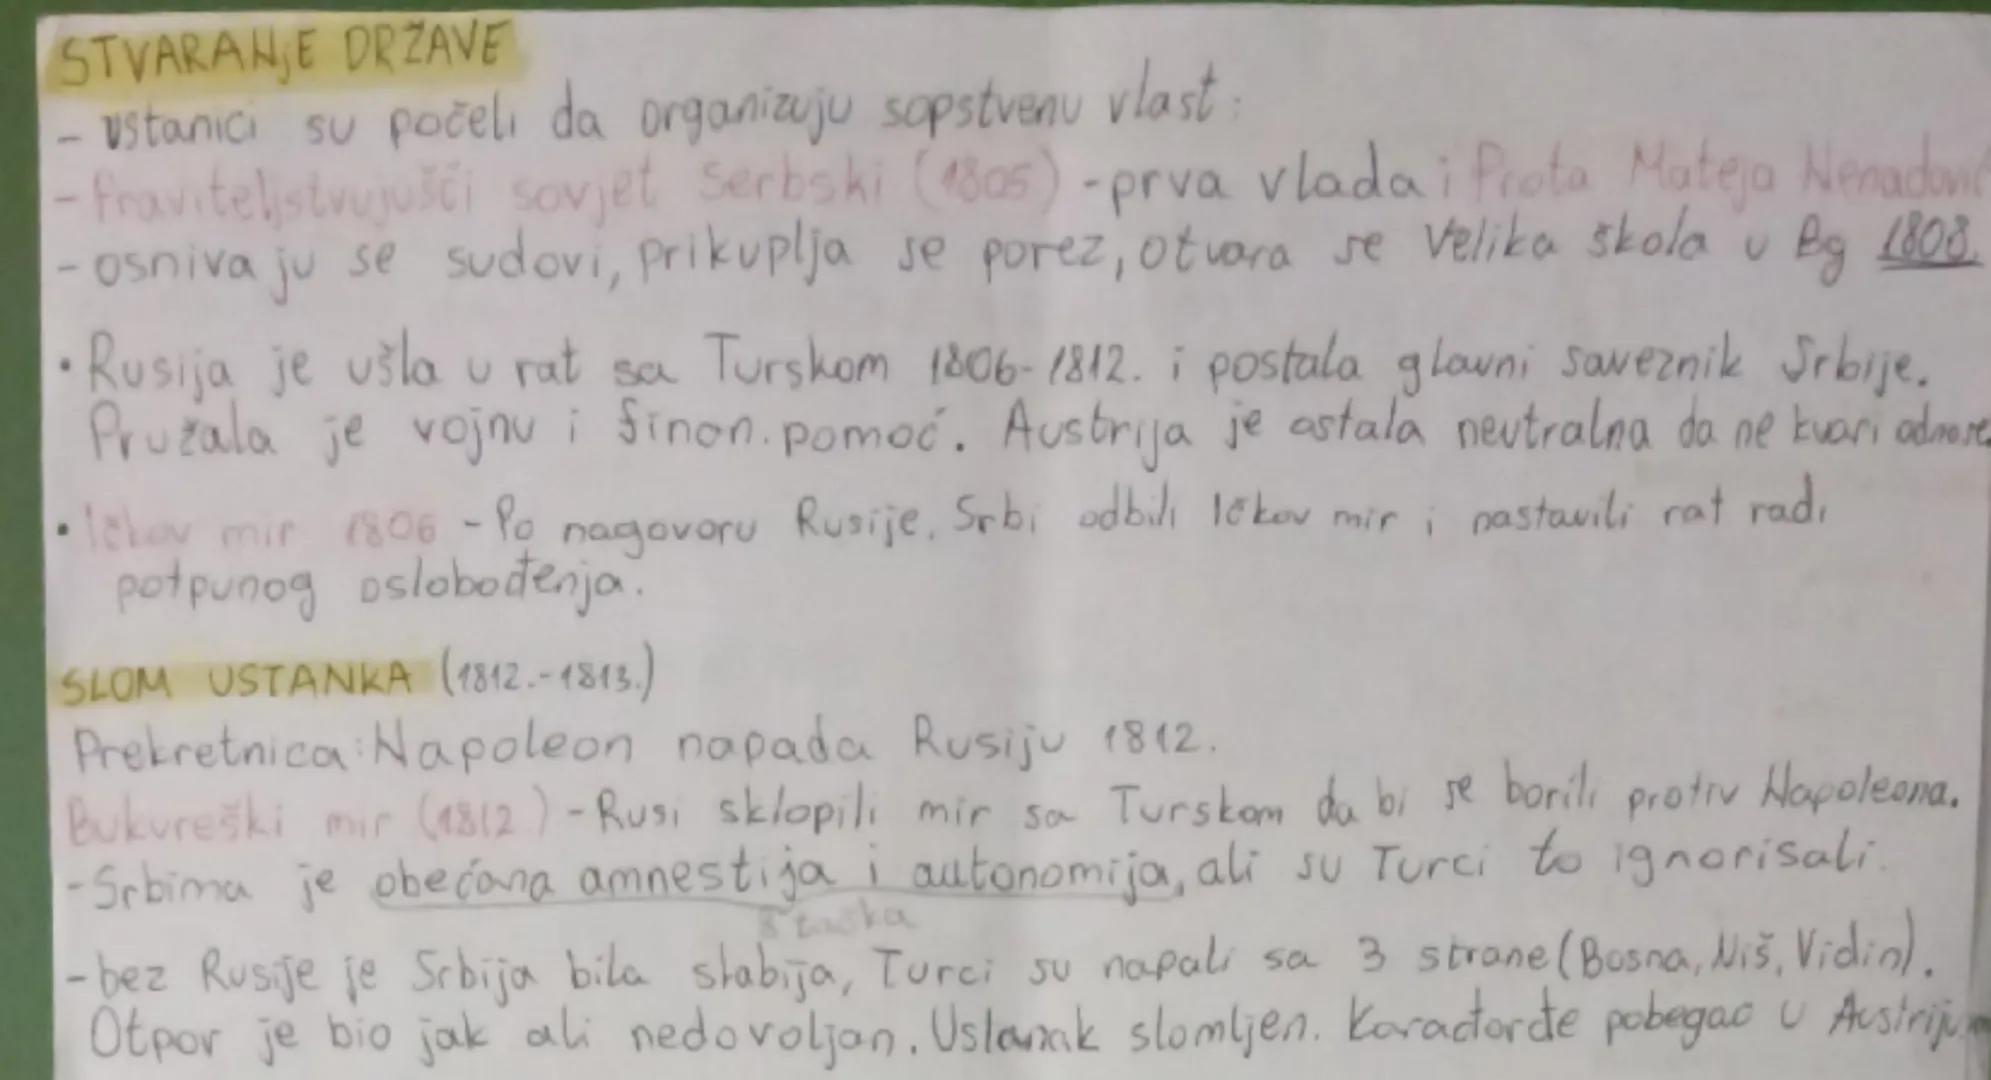 STVARANJE DRŽAVE
- ustanici su počeli da organizuju sopstvenu vlast:
- Praviteljstvujušči sovjet Serbski (1805) - prva vlada i Prota Mateja Nenadović
- osnivaju se sudovi, prikuplja se porez, otvara se Velika škola u Bg 1808.
• Rusija je ušla u rat sa Turskom 1806-1812. i postala glavni saveznik Srbije.
Pružala je vojnu i finan. pomoć. Austrija je ostala neutralna da ne kvari odnose
• Ičkov mir 1806 - Po nagovoru Rusije, Srbi odbili Ičkov mir i nastavili rat radi
potpunog oslobođenja.
SLOM USTANKA (1812.-1813.)
Prekretnica: Napoleon napada Rusiju 1812.
Bukureški mir (1812) - Rusi sklopili mir sa Turskom da bi se borili protiv Napoleona.
- Srbima je obećana amnestija i autonomija, ali su Turci to ignorisali.
8 tačka
- bez Rusije je Srbija bila slabija, Turci su napali sa 3 strane (Bosna, Niš, Vidin).
Otpor je bio jak ali nedovoljan. Ustanak slomljen. Karađorđe pobegao u Austriju